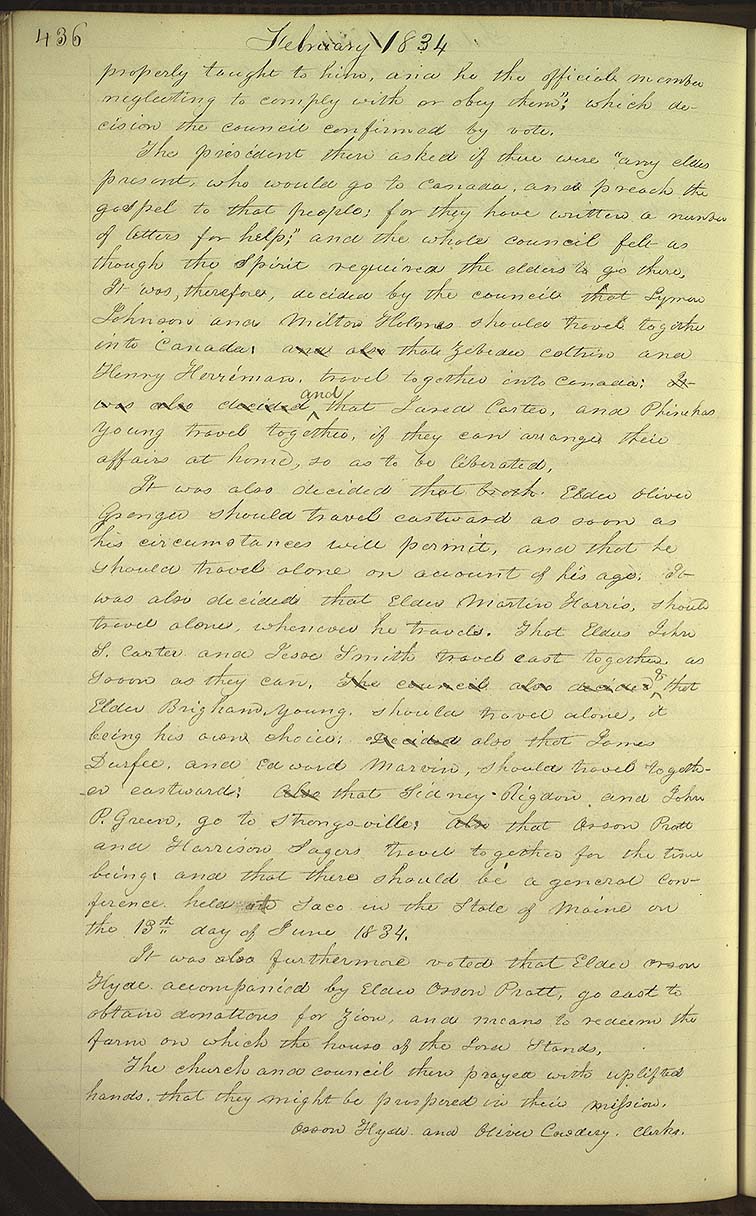 436
February 1834
properly taught to him, and he the official member
neglecting to comply with or obey them"; which de-
cision the council confirmed by vote.
The president then asked if there were "any elder
present, who would go to Canada, and preach the
gospel to that people; for they have written a number
of letters for help;" and the whole council felt as
though the Spirit required the elders to go there.
It was, therefore, decided by the council that Lyman
Johnson and Milton Holmes should travel together
into Canada; and also that Zebedee Coltrin and
Henry Herriman, travel together into Canada; It
was also decided and that Jared Carter, and Phinehas
Young travel together, if they can arrange their
affairs at home, so as to be liberated.
It was also decided that broth. Elder Oliver
Granger should travel eastward as soon as
his circumstances will permit, and that he
should travel alone on account of his age; It
was also decided that Elder Martin Harris, should
travel alone, whenever he travels. That Elders John
S. Carter and Jesse Smith travel east together, as
soon as they can. The council also decided & that
Elder Brigham Young should travel alone, it
being his own choice; Decided also that James
Durfee, and Edward Marvin, should travel togeth-
er eastward; Also that Sidney Rigdon and John
P. Green, go to Strongsville; Also that Orson Pratt
and Harrison Sagers travel together for the time
being; and that there should be a general Con-
ference held at Saco in the State of Maine on
the 13th day of June 1834.
It was also furthermore voted that Elder Orson
Hyde accompanied by Elder Orson Pratt, go east to
obtain donations for Zion, and means to redeem the
farm on which the house of the Lord Stands.
The church and council then prayed with uplifted
hands that they might be prospered in their mission.
Orson Hyde and Oliver Cowdery. Clerks.